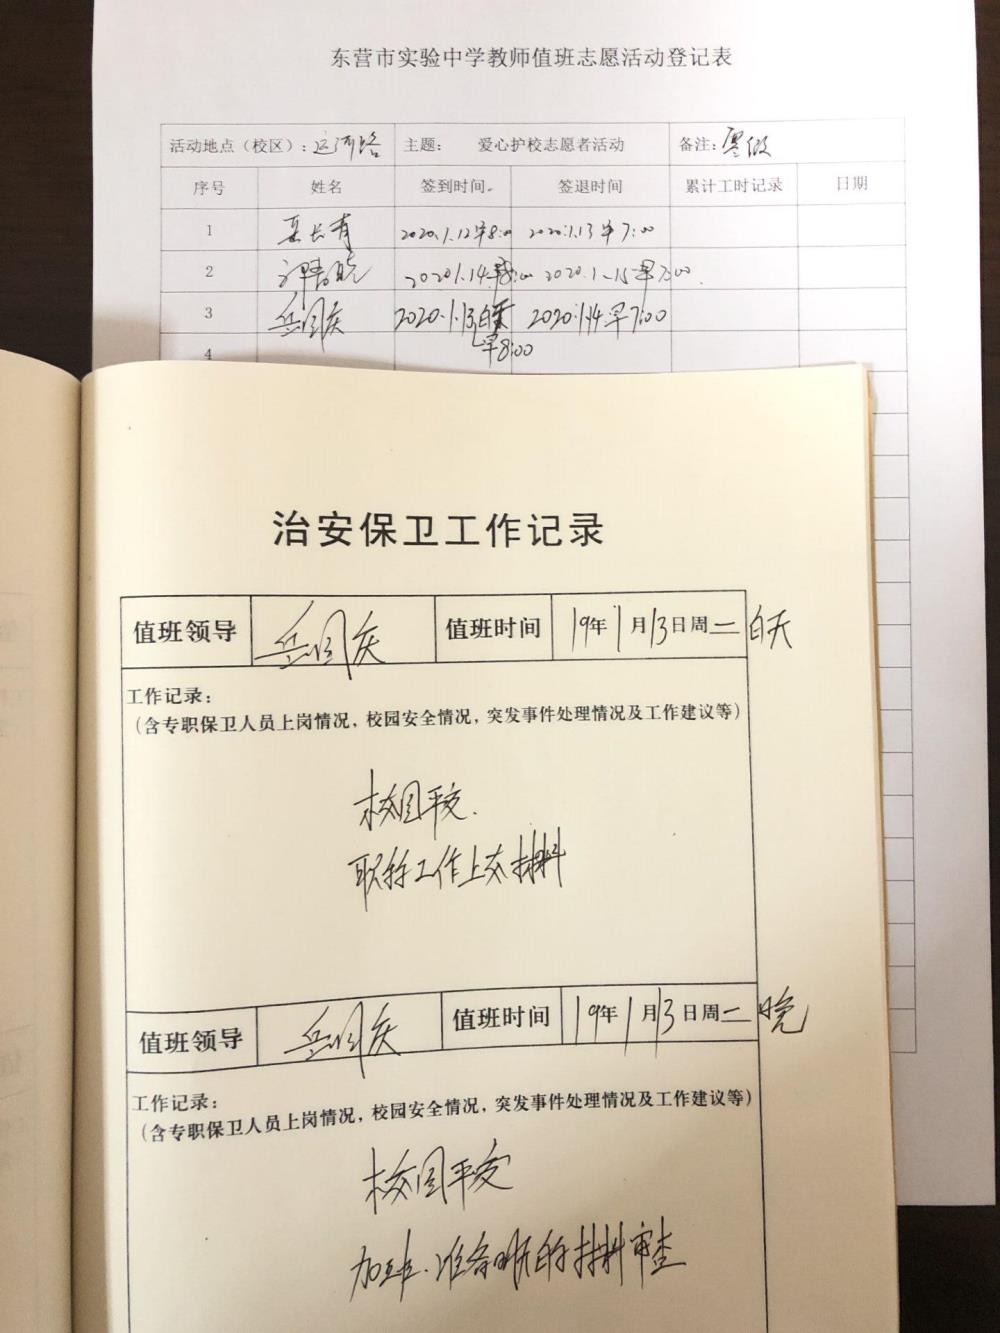 东营市实验中学教师值班志愿活动登记表
活动地点（校区）：运河路 主题： 爱心护校志愿者活动 备注：寒假
序号 姓名 签到时间。 签退时间 累计工时记录 日期
1 2020.1.12早8:00 2020.1.13早7:00
2 2020.1.14早8:00 2020.1.15早7:00
3 岳同庆 2020.1.13白天 2020.1.14早7:00
早8:00
4
治安保卫工作记录
值班领导 岳同庆 值班时间 19年1月13日周二 白天
工作记录：
（含专职保卫人员上岗情况，校园安全情况，突发事件处理情况及工作建议等）
校园平安.
职称工作上交材料
值班领导 岳同庆 值班时间 19年1月13日周二 晚
工作记录：
（含专职保卫人员上岗情况，校园安全情况，突发事件处理情况及工作建议等）
校园平安
加班.准备明天的材料审查